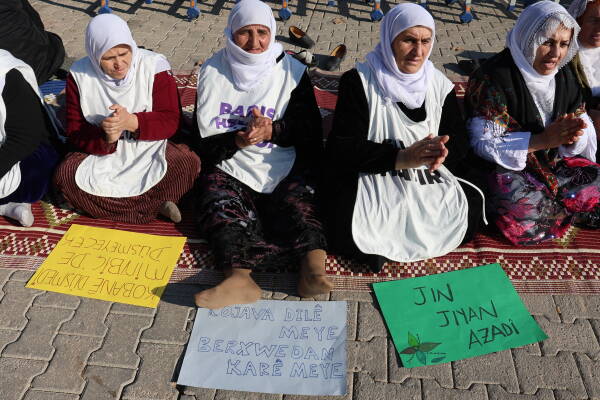 BARIŞ
KOBANE DÜŞMEDİ
MİNBİC DE
DÜŞMEYECEK
ROJAVA DILÊ
MEYE
BERXWEDAN
KARÊ MEYE
JIN
JIYAN
AZADÎ